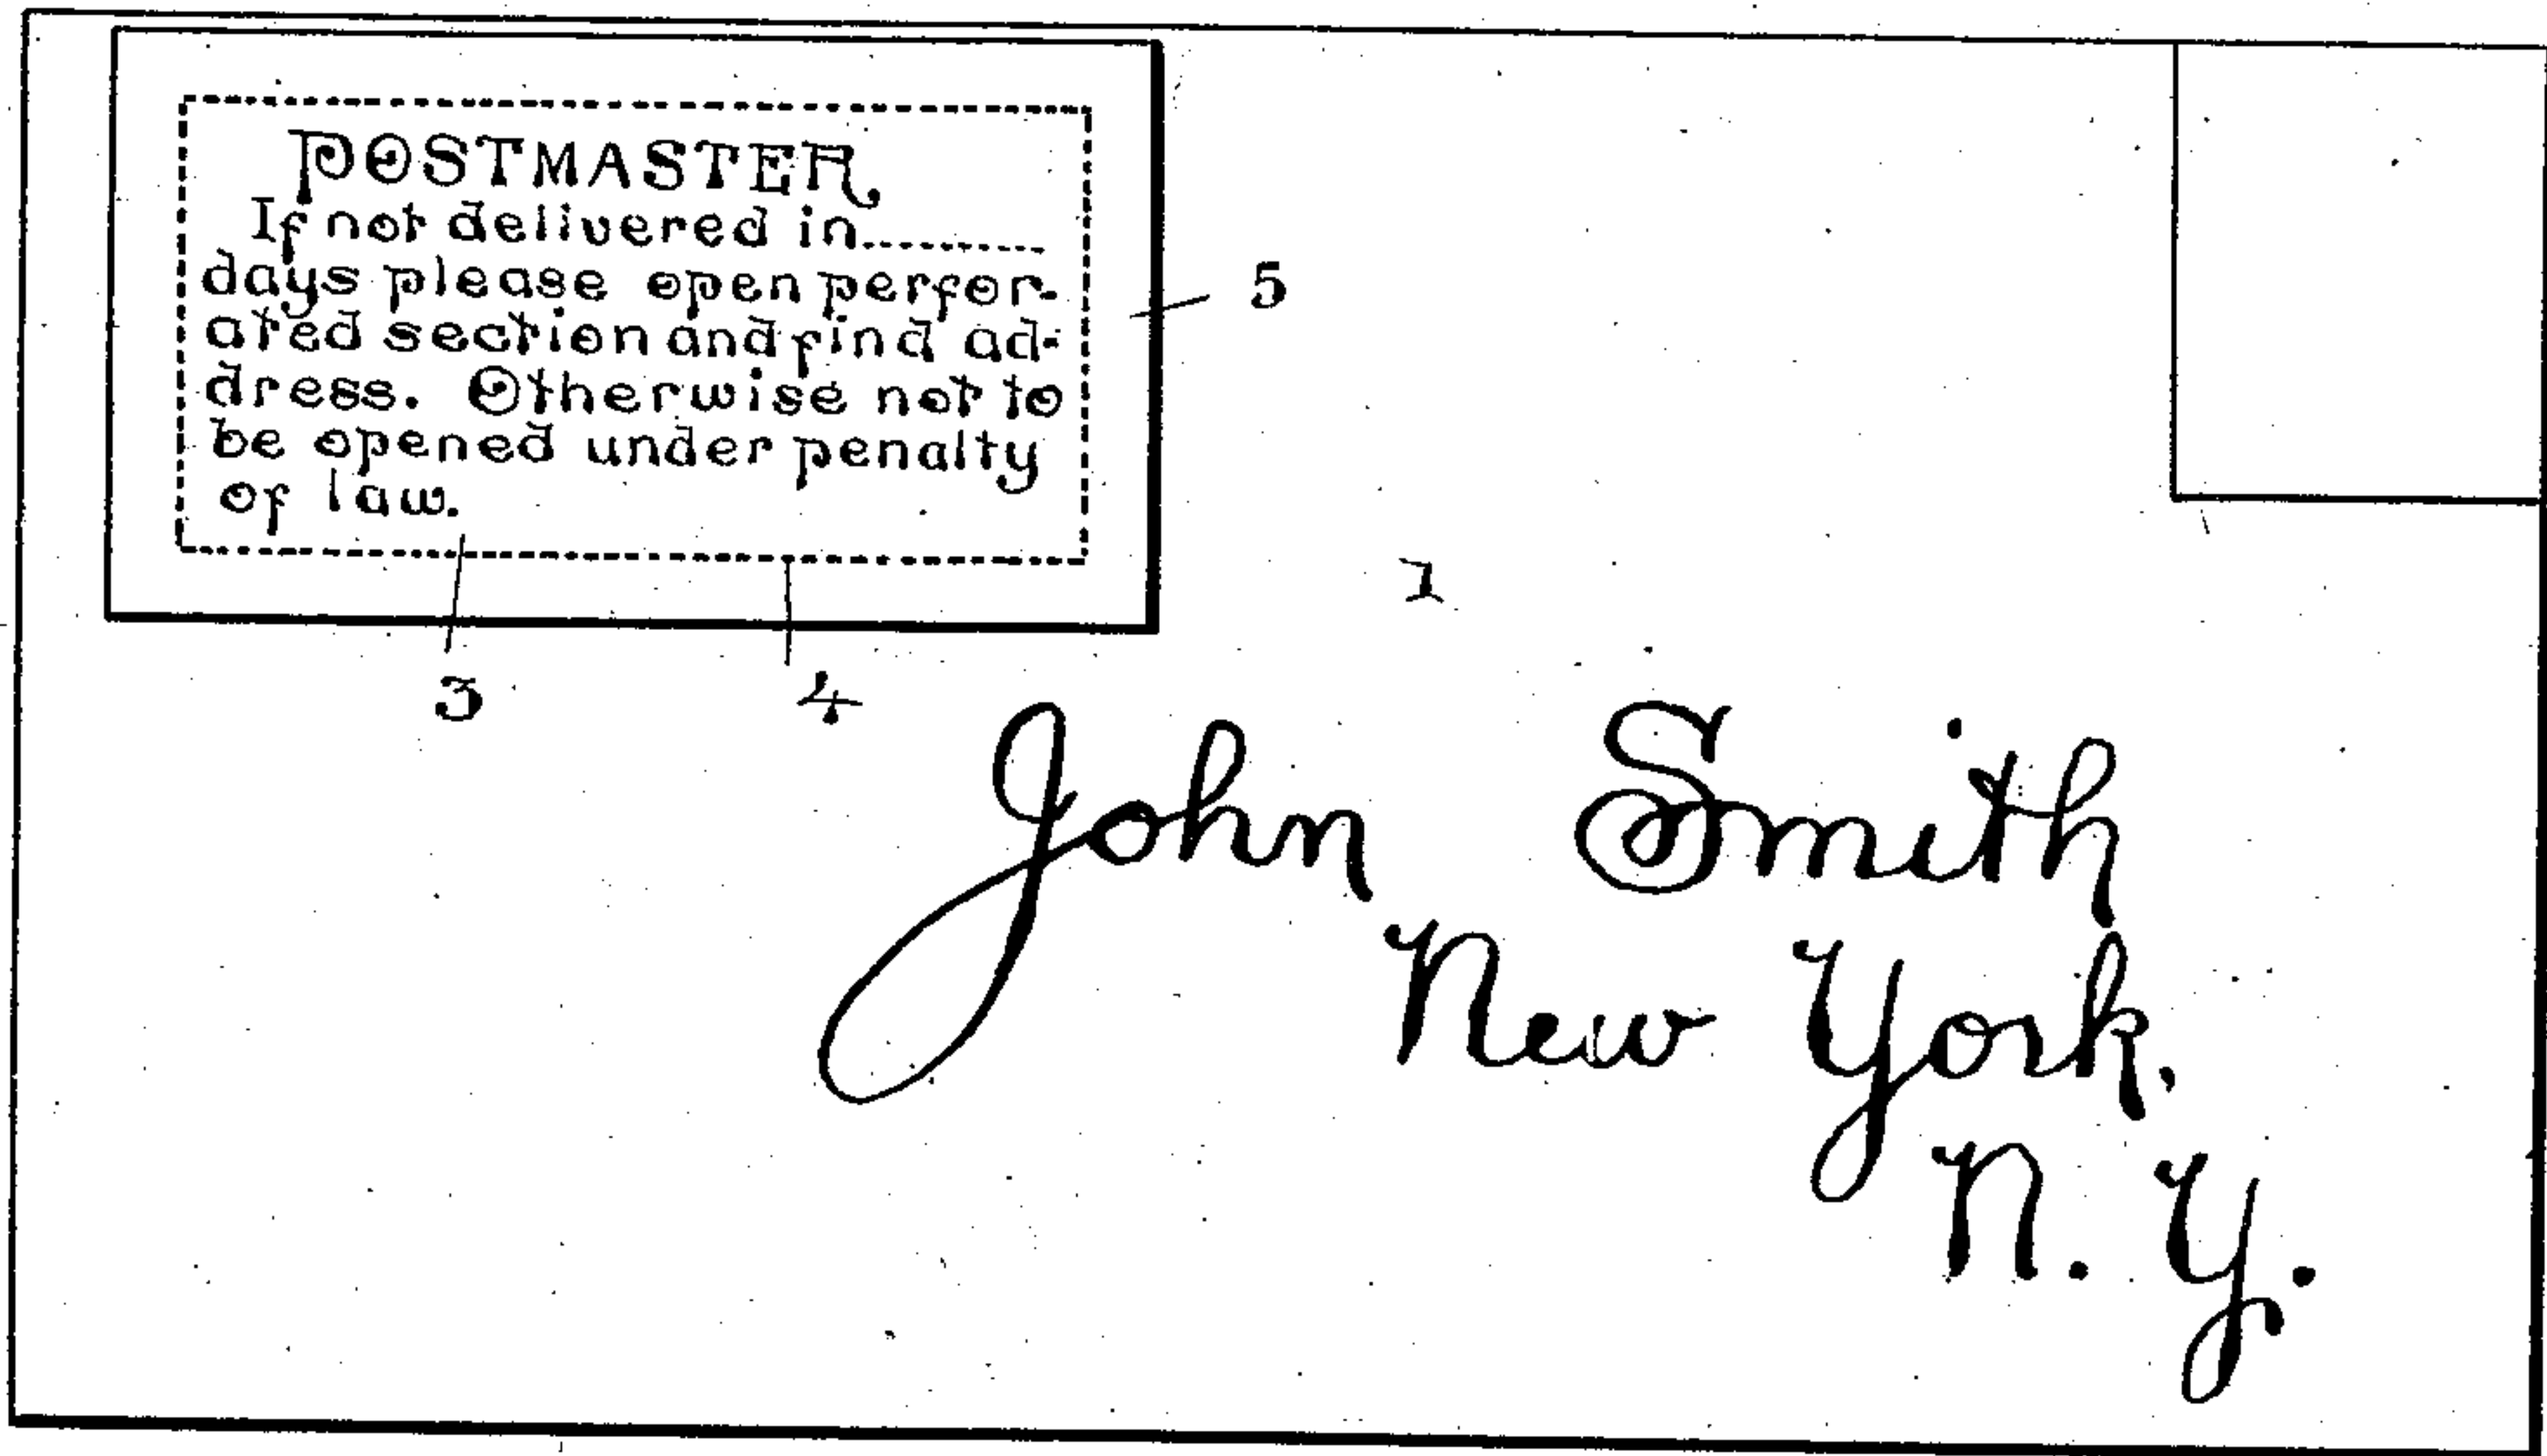 POSTMASTER
If not delivered in..........
days please open perfor-
ated section and find ad-
dress. Otherwise not to
be opened under penalty
of law.
5
1
3
4
John Smith
New York.
N. Y.